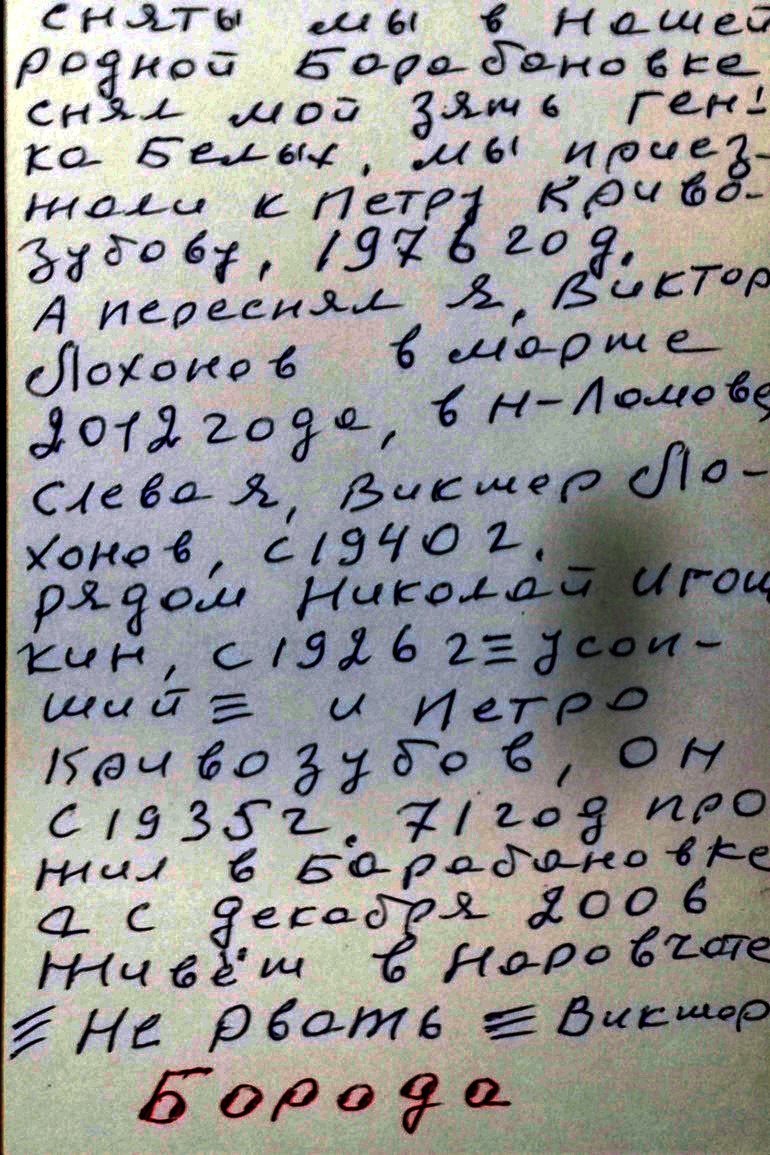 сняты мы в нашей
родной Барабановке
снял мой зять Ген-
ка Белых, мы приез-
жали к Петру Криво-
зубову, 1976 год.
А переснял я, Виктор
Лохонов в марте
2012 года, в Н-Ломове
Слева я, Виктор Ло-
хонов, с 1940 г.
рядом Николай Игош
кин, с 1926 г ≡ усоп-
ший ≡ и Петро
Кривозубов, он
с 1935 г. 71 год про
жил в Барабановке
а с декабря 2006
живёт в Наровчате
≡ Не рвать ≡ Виктор
Борода